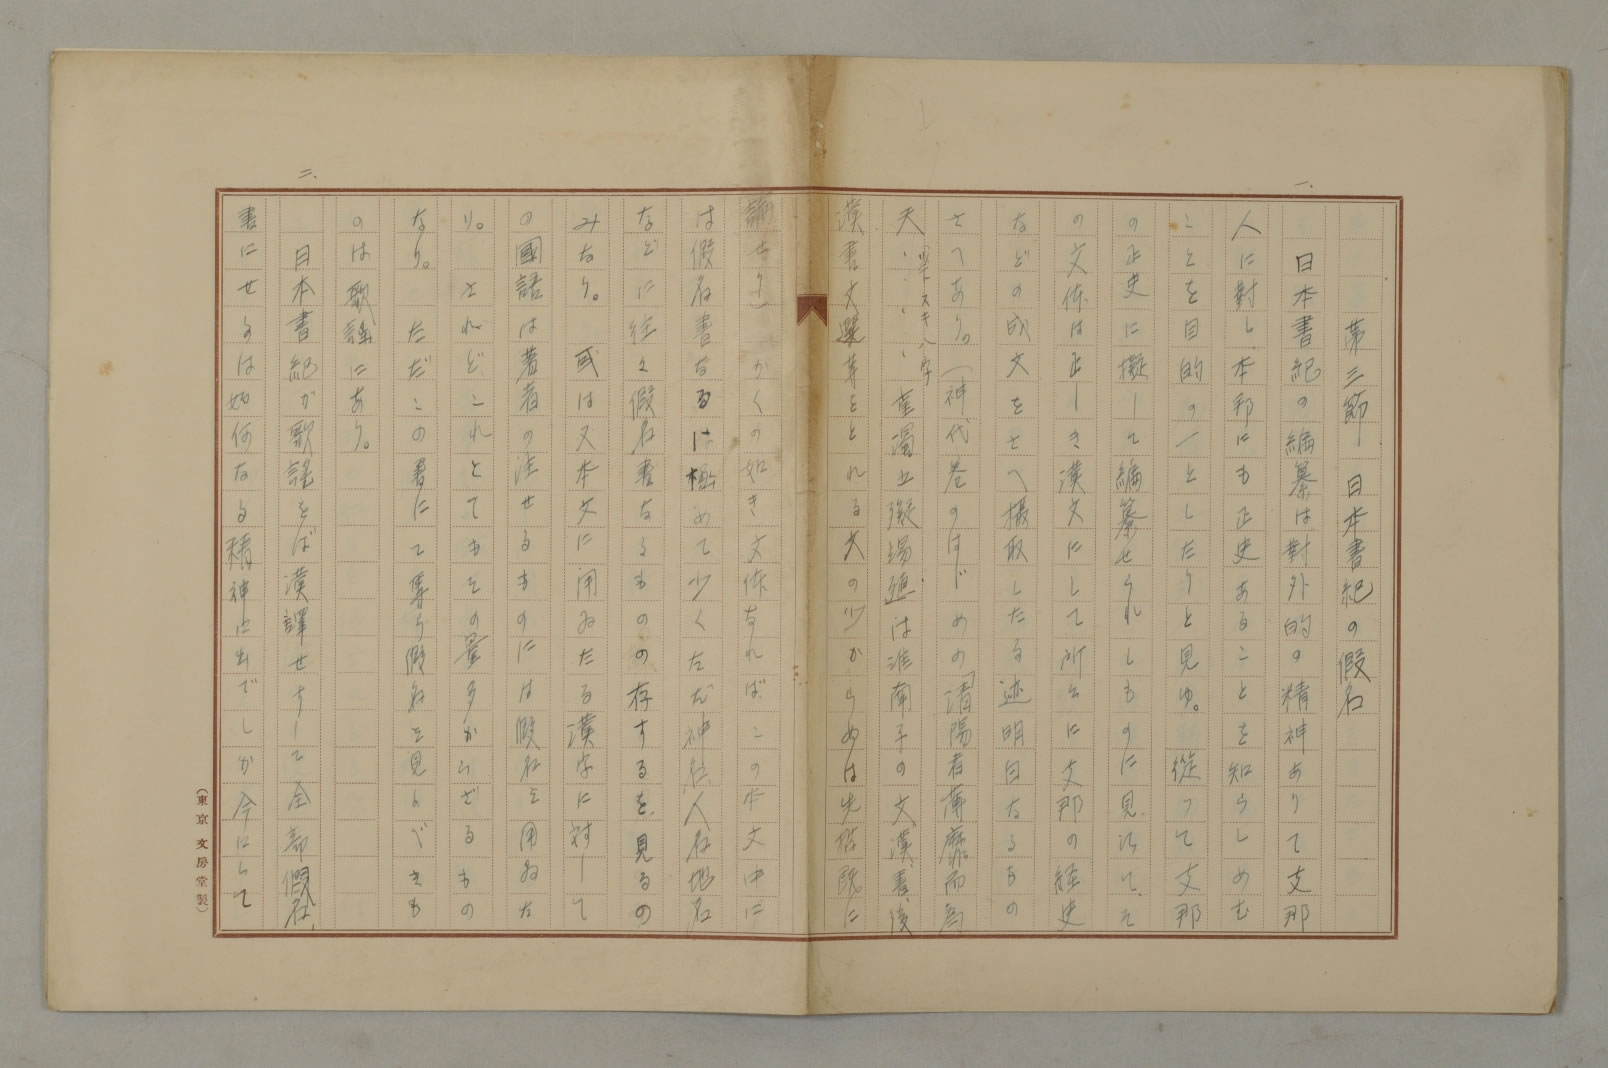 一.
第三節 日本書紀の假名
日本書紀の編纂は對外的の精神ありて支那
人に對し、本邦にも正史あることを知らしめむ
ことを目的の一としたりと見ゆ。從つて支那
の正史に擬して編纂せられしものに見江て、そ
の文体は正しき漢文にして所々に支那の經史
などの成文をさへ攝取したる迹明白なるもの
さへあり。(神代卷のはじめの「淸陽者薄靡而爲
天、、、、重濁之凝場遲は淮南子の文)漢書、後
漢書文選等をとれる文の少からぬは先哲既に
論せり) かくの如き文体なれば、この本文中に
は假名書なるは極めて少くただ神名人名地名
などに往々假名書なるものの存するを見るの
みなり。或は又本文に用ゐたる漢字に対して
の國語は著者の注せるものには假名を用ゐた
り。されどこれとてもその量多からざるもの
なり。ただこの書にて專ら假名を見るべきも
のは歌謠にあり。
二.
日本書紀が歌謠をば漢譯せずして全部假名
書にせるは如何なる精神に出でしか今にして
(東京 文房堂製)